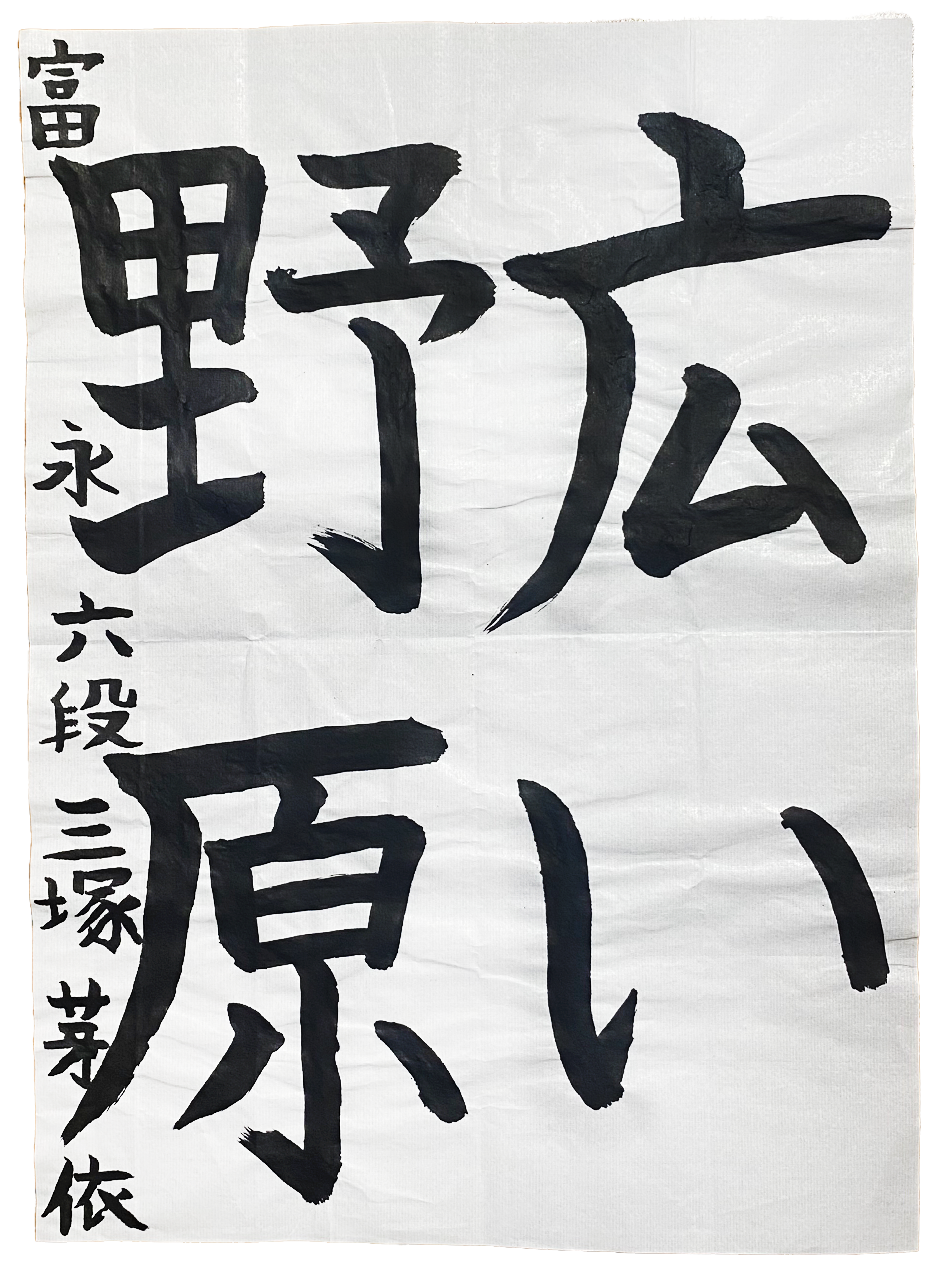 広い
野原
富永 六段 三塚芽依